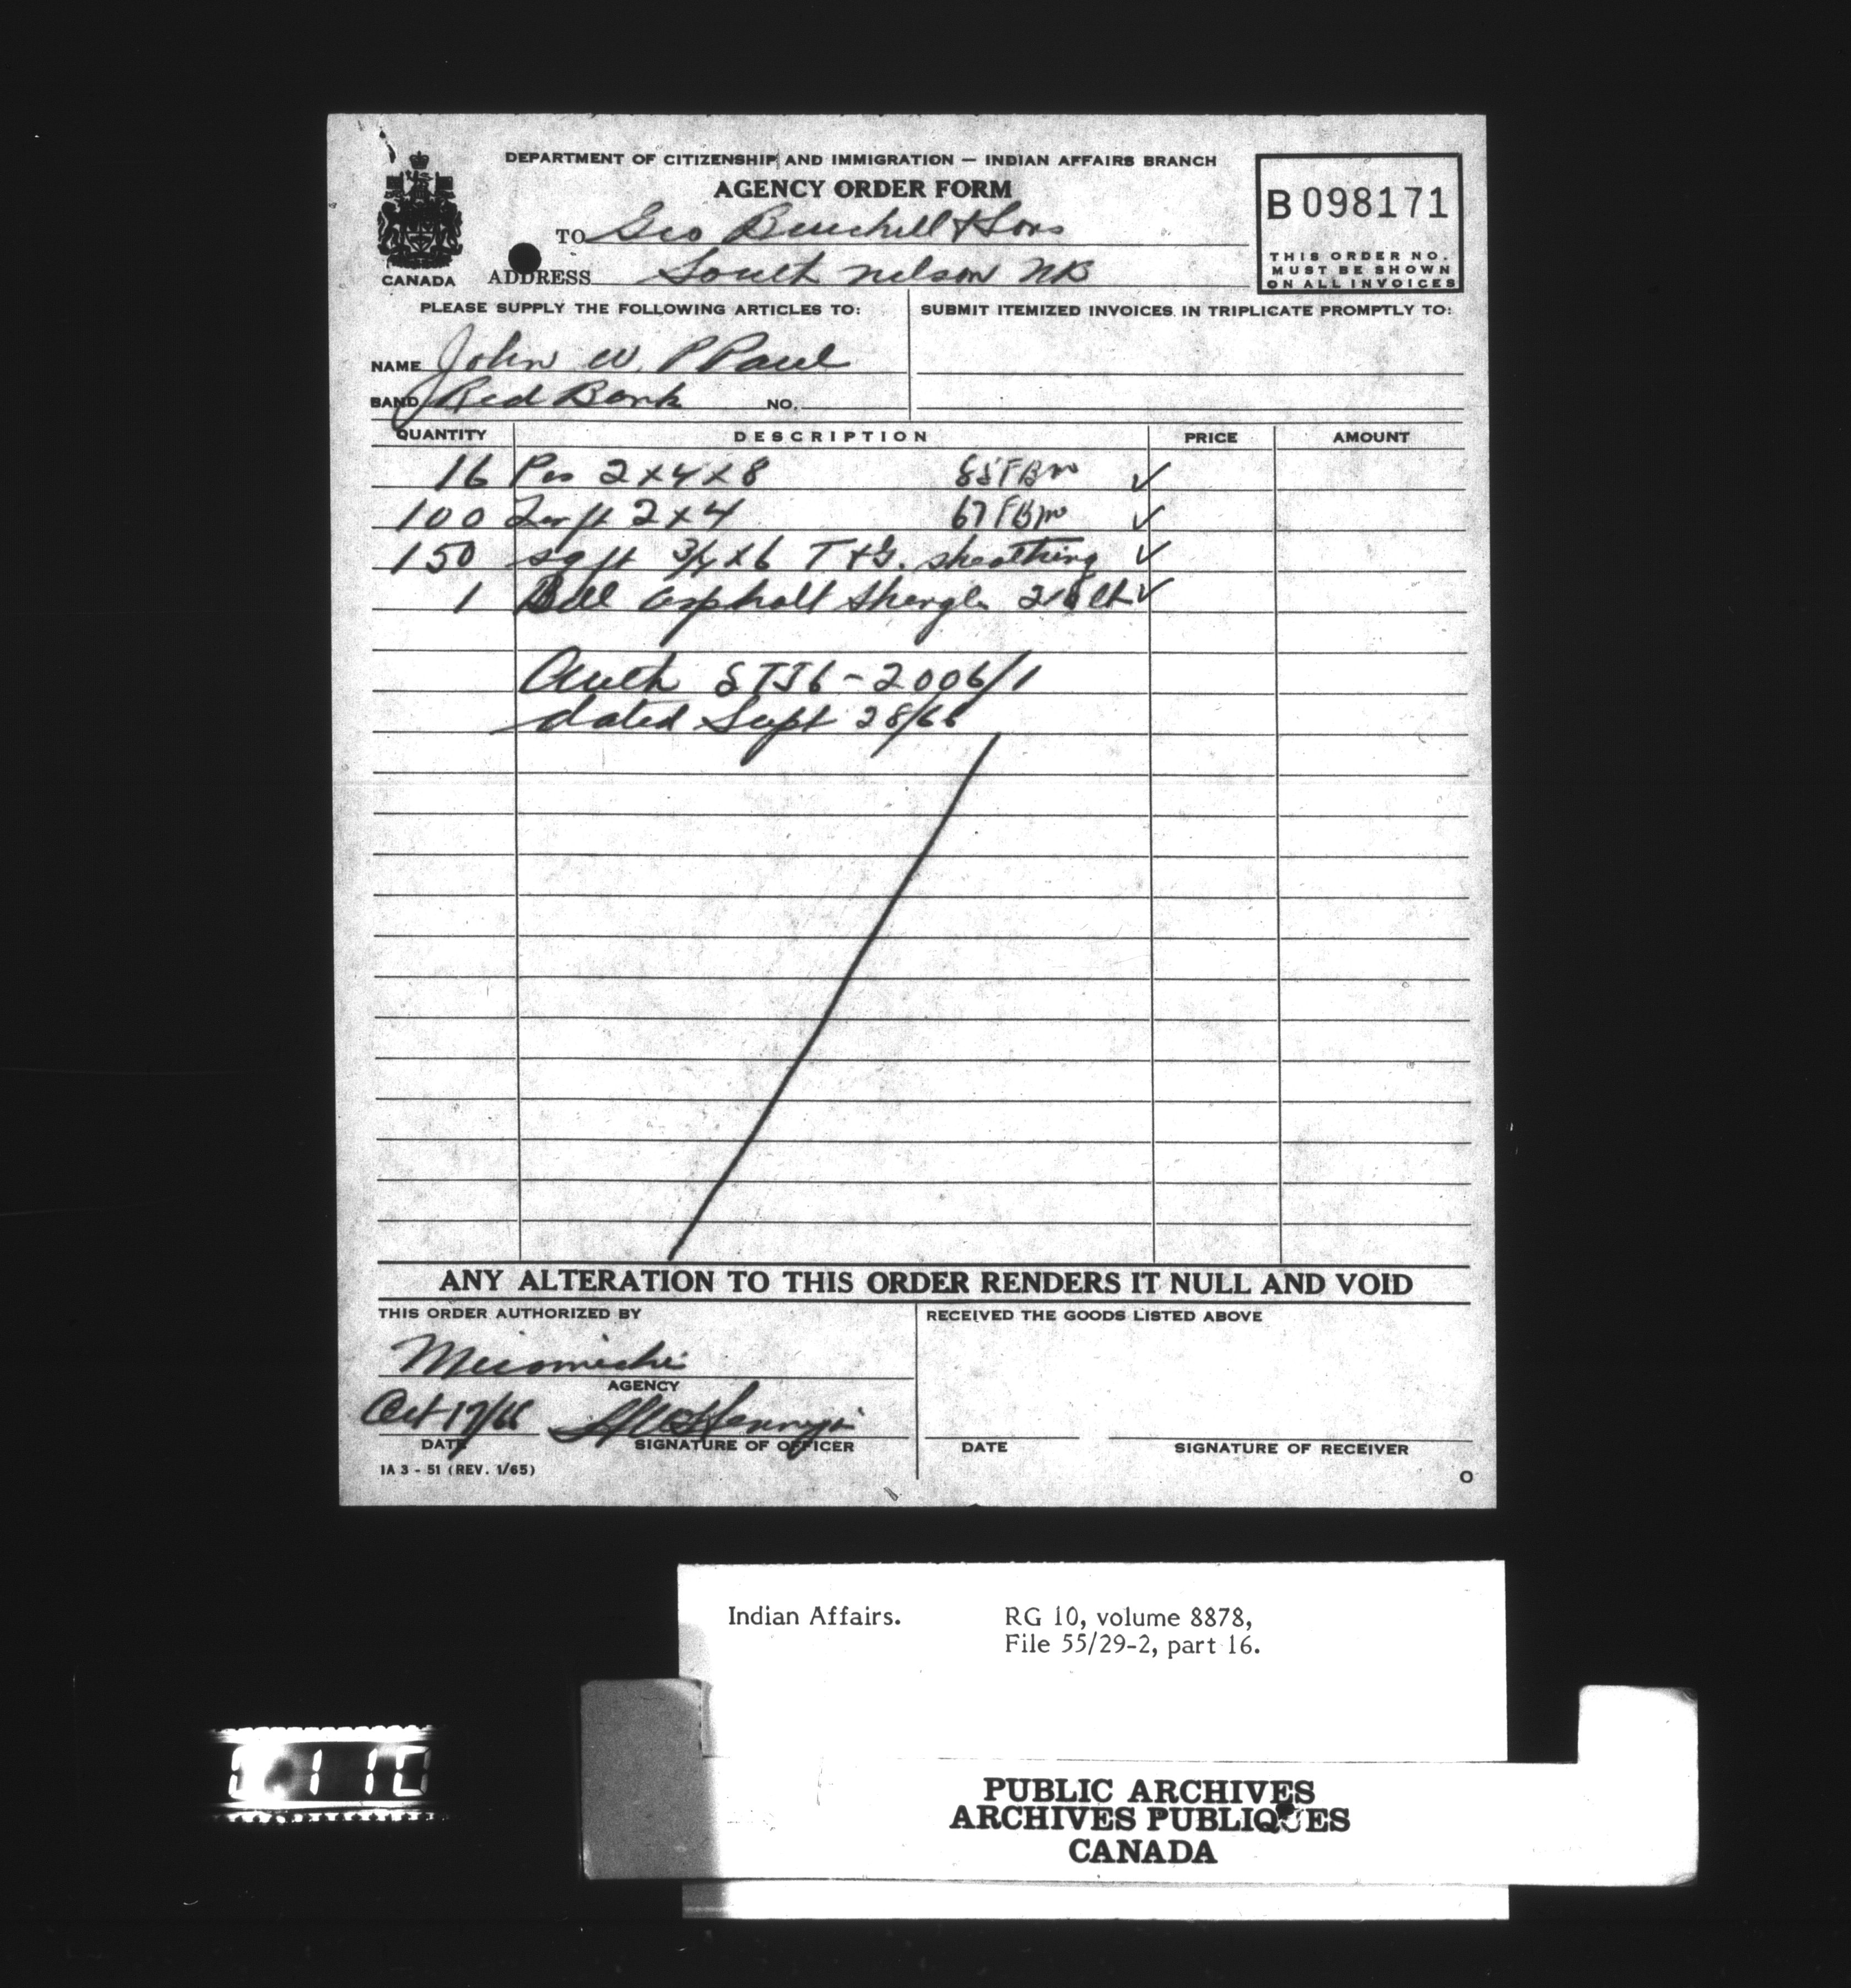 DEPARTMENT OF CITIZENSHIP AND IMMIGRATION — INDIAN AFFAIRS BRANCH
AGENCY ORDER FORM
B 098171
THIS ORDER NO.
MUST BE SHOWN
ON ALL INVOICES
CANADA
TO Geo Burchill & Sons
ADDRESS South Nelson NB
PLEASE SUPPLY THE FOLLOWING ARTICLES TO:
SUBMIT ITEMIZED INVOICES IN TRIPLICATE PROMPTLY TO:
NAME John W. P Paul
BAND Red Bank NO.
QUANTITY DESCRIPTION PRICE AMOUNT
16 Pcs 2x4x8 85 FBM ✓
100 Lin ft 2x4 67 FBM ✓
150 sq ft 3/4 x 6 T & G. sheathing ✓
1 Bdl asphalt shingles ✓
Auth 2006/1
dated Sept 28/66
ANY ALTERATION TO THIS ORDER RENDERS IT NULL AND VOID
THIS ORDER AUTHORIZED BY
RECEIVED THE GOODS LISTED ABOVE
Miramichi
AGENCY
Oct 17/66
DATE SIGNATURE OF OFFICER DATE SIGNATURE OF RECEIVER
IA 3 - 51 (REV. 1/65)
O
Indian Affairs. RG 10, volume 8878,
File 55/29-2, part 16.
PUBLIC ARCHIVES
ARCHIVES PUBLIQUES
CANADA